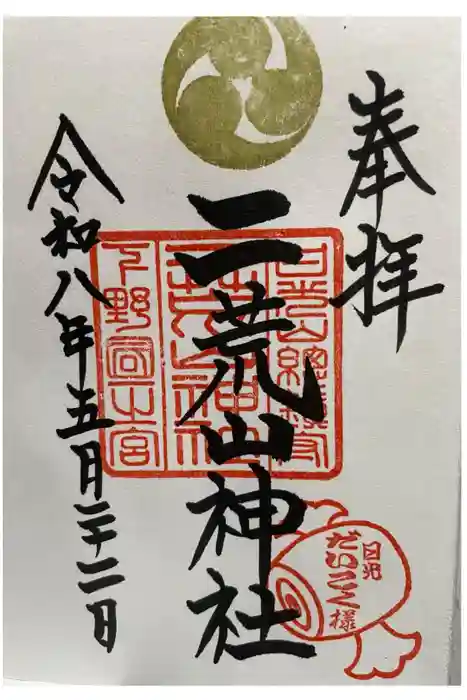 奉拝
二荒山神社
令和八年五月二十二日
日光山總鎮守
二荒山神社
下野国一之宮
日光
だいこく様